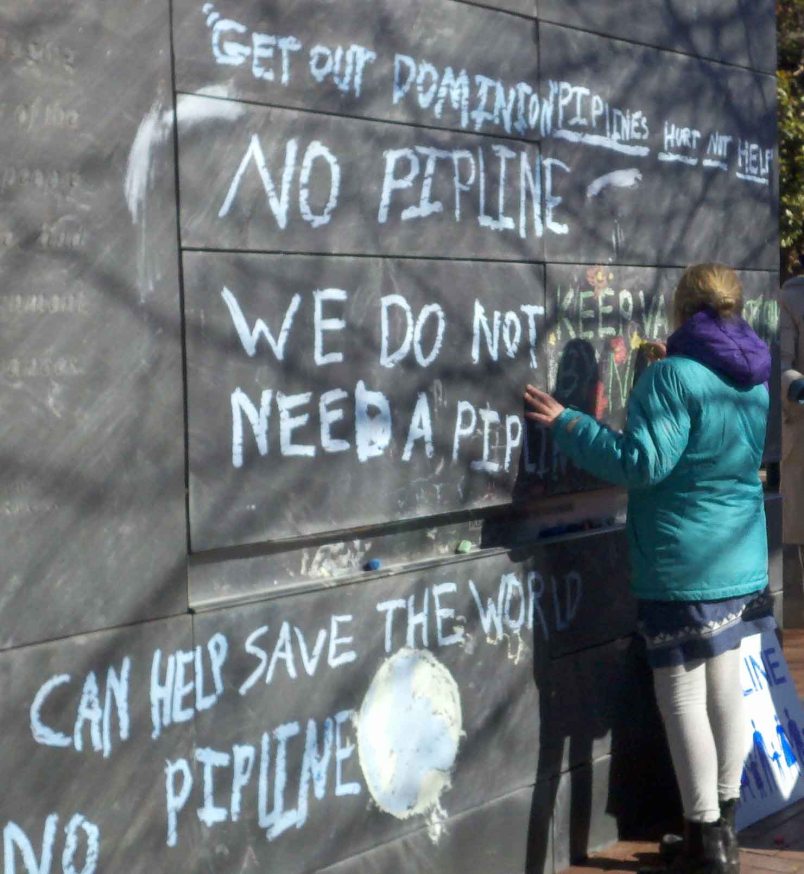 "GET OUT DOMINION
"PIPLINES HURT NOT HELP"
NO PIPLINE
WE DO NOT
NEED A PIPLIN
KEEP VA
CAN HELP SAVE THE WORLD
NO PIPLINE
LINE